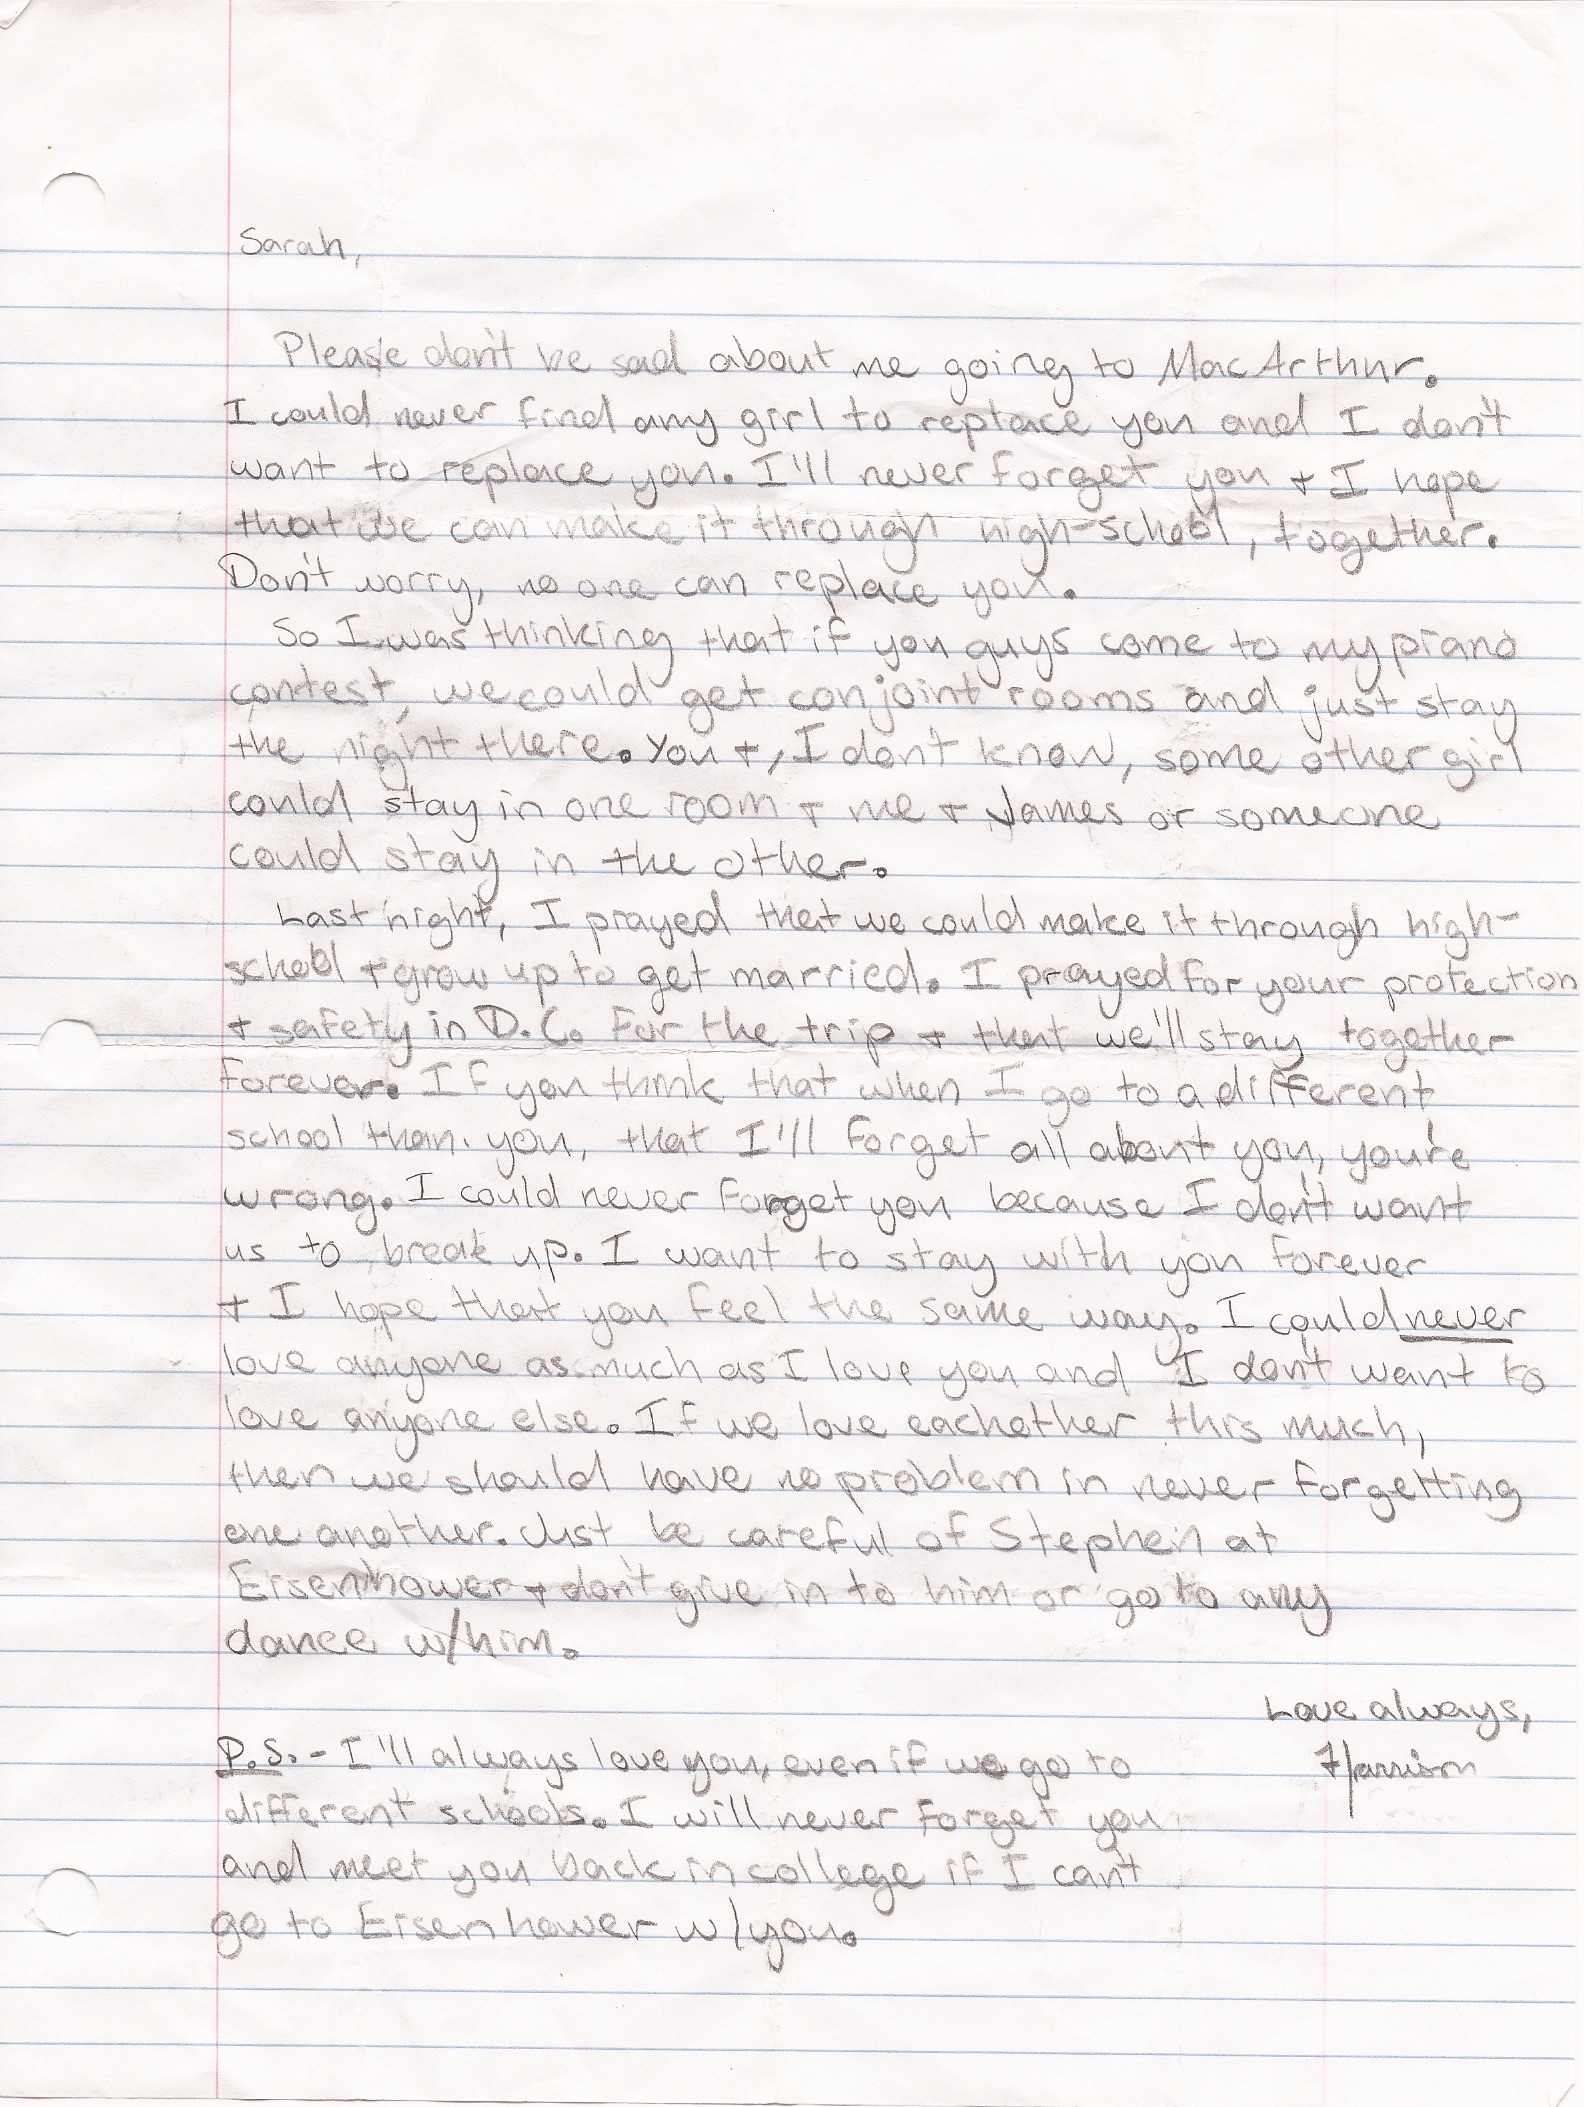 Sarah,
Please don't be sad about me going to MacArthur.
I could never find any girl to replace you and I don't
want to replace you. I'll never forget you + I hope
that we can make it through high-school, together.
Don't worry, no one can replace you.
So I was thinking that if you guys come to my piano
contest, we could get conjoint rooms and just stay
the night there. You +, I don't know, some other girl
could stay in one room + me + James or someone
could stay in the other.
Last night, I prayed that we could make it through high-
school + grow up to get married. I prayed for your protection
+ safety in D.C. for the trip + that we'll stay together
forever. If you think that when I go to a different
school than you, that I'll forget all about you, you're
wrong. I could never forget you because I don't want
us to break up. I want to stay with you forever
+ I hope that you feel the same way. I could never
love anyone as much as I love you and I don't want to
love anyone else. If we love eachother this much,
then we should have no problem in never forgetting
one another. Just be careful of Stephen at
Eisenhower + don't give in to him or go to any
dance w/him.
Love always,
Harrison
P.S. - I'll always love you, even if we go to
different schools. I will never forget you
and meet you back in college if I can't
go to Eisenhower w/you.